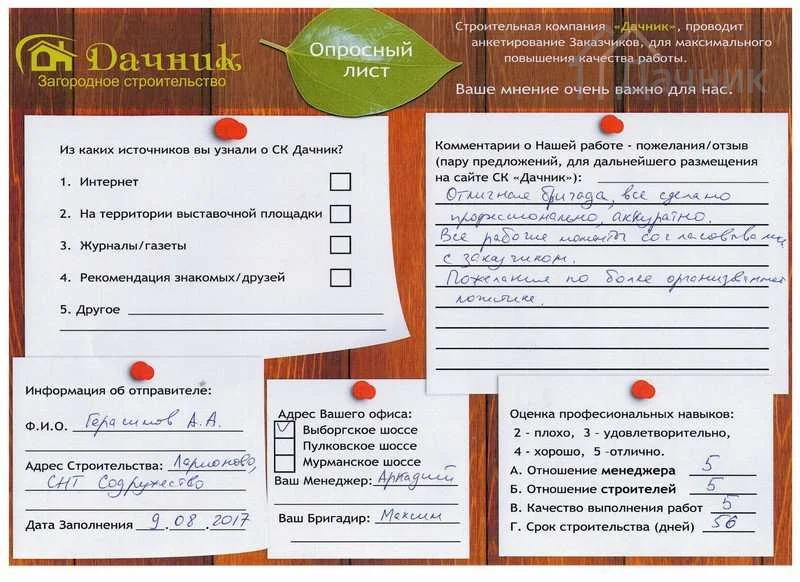 Дачник
Загородное строительство
Опросный
лист
Строительная компания «Дачник», проводит
анкетирование Заказчиков, для максимального
повышения качества работы.
Ваше мнение очень важно для нас.
Дачник
Из каких источников вы узнали о СК Дачник?
1. Интернет
2. На территории выставочной площадки
3. Журналы/газеты
4. Рекомендация знакомых/друзей
5. Другое
Комментарии о Нашей работе - пожелания/отзыв
(пару предложений, для дальнейшего размещения
на сайте СК «Дачник»):
Отличная бригада, все сделано
профессионально, аккуратно.
Все рабочие моменты согласовывали
с заказчиком.
Пожелания по более организованной
логистике.
Информация об отправителе:
Ф.И.О. Герасимов А.А.
Адрес Строительства: Ларионово,
СНТ Содружество
Дата Заполнения 9.08.2017
Адрес Вашего офиса:
Выборгское шоссе
Пулковское шоссе
Мурманское шоссе
Ваш Менеджер: Аркадий
Ваш Бригадир: Максим
Оценка професиональных навыков:
2 - плохо, 3 - удовлетворительно,
4 - хорошо, 5 -отлично.
А. Отношение менеджера 5
Б. Отношение строителей 5
В. Качество выполнения работ 5
Г. Срок строительства (дней) 56